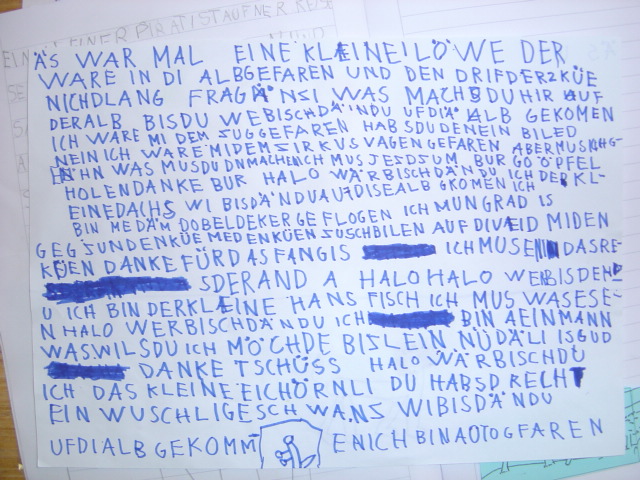 ÄS WAR MAL EINE KLÆINEILÖWE DER
WARE IN DI ALBGEFAREN UND DEN DRIFDERZKÜE
NICHDLANG FRAGÄNSI WAS MACHSDUHIR AUF
DERALB BISDU WEBISCHDÄINDU UFDIÄ ALB GEKOMEN
ICH WARE MI DEM ZUGGEFAREN HABSDUDENEIN BILED
NEIN ICH WARE MIDEM ZIRKUSVAGEN GEFAREN ABERMUSICHG-
EHN WAS MUSDUDNMACHENICH MUS JESDSUM BURGOÖPFEL
HOLENDANKE BUR HALO WÄRBISCHDÄNDU ICH DERKL-
EINEDACHS WI BISDÄNDUAUFDISEALB GKOMEN ICH
BIN MEDÄM DOBELDEKER GEFLOGEN ICH MUNGRAD IS
GEG SUNDENKÜE MEDENKÜEN ZUSCHBILEN AUF DIVÆID MIDEN
KÜEN DANKE FÜRDASFANGIS ICHMUSEN DASRE-
SDERAND A HALO HALO WEBISDEND
U ICH BIN DERKLÆINE HANS FISCH ICH MUS WASESE-
N HALO WERBISCHDÄNDU ICH BIN AEINMANN
WASWILSDU ICH MÖCHDE BISLEIN NÜDÄLI ISGUD
DANKE TSCHÜSS HALO WÄRBISCHDU
ICH DAS KLEINE EICHÖRNLI DU HABSD RECHT
EIN WUSCHLIGESCHWANS WIBISDÄNDU
UFDIALB GEKOMM ENICH BINAOTOGFAREN